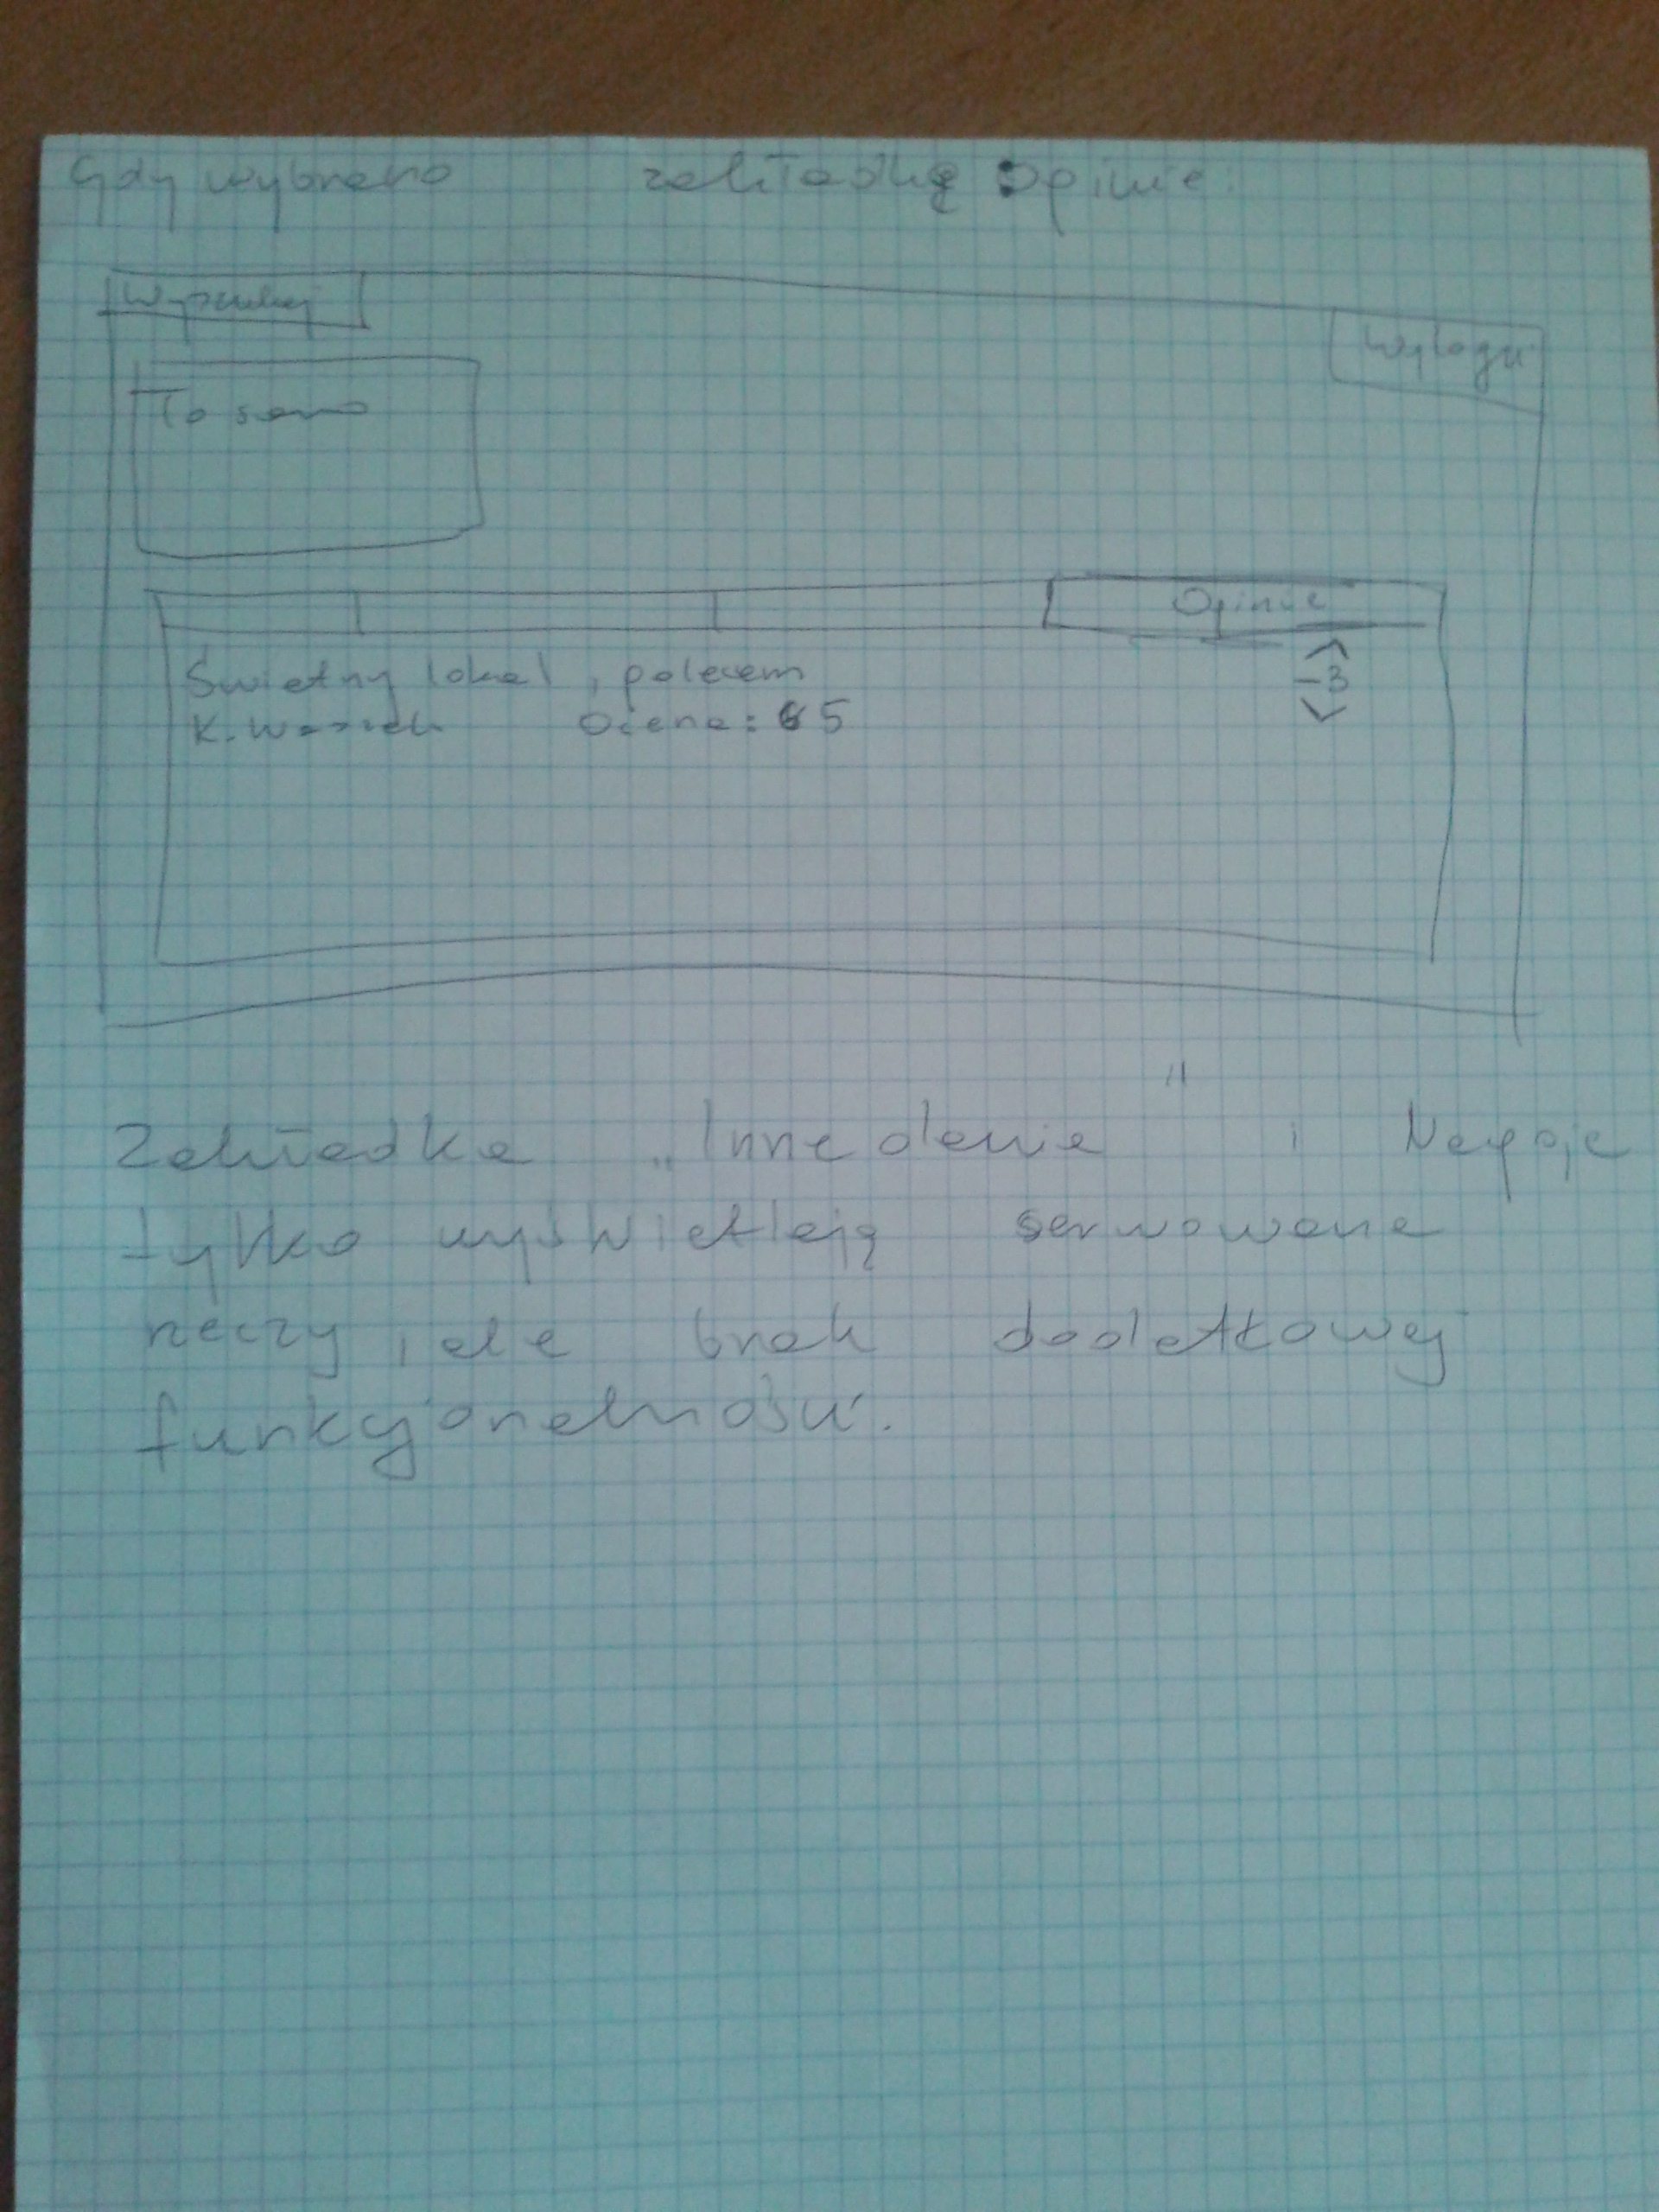 Gdy wybrano zakładkę Opinie:
Wyszukaj
Wyloguj
To samo
Opinie
Świetny lokal, polecam
-3
K. Wąsick Ocena: 5
Zakładka „Inne danie" i Napoje
tylko wyświetlają serwowane
rzeczy, ale brak dodatkowej
funkcjonalności.